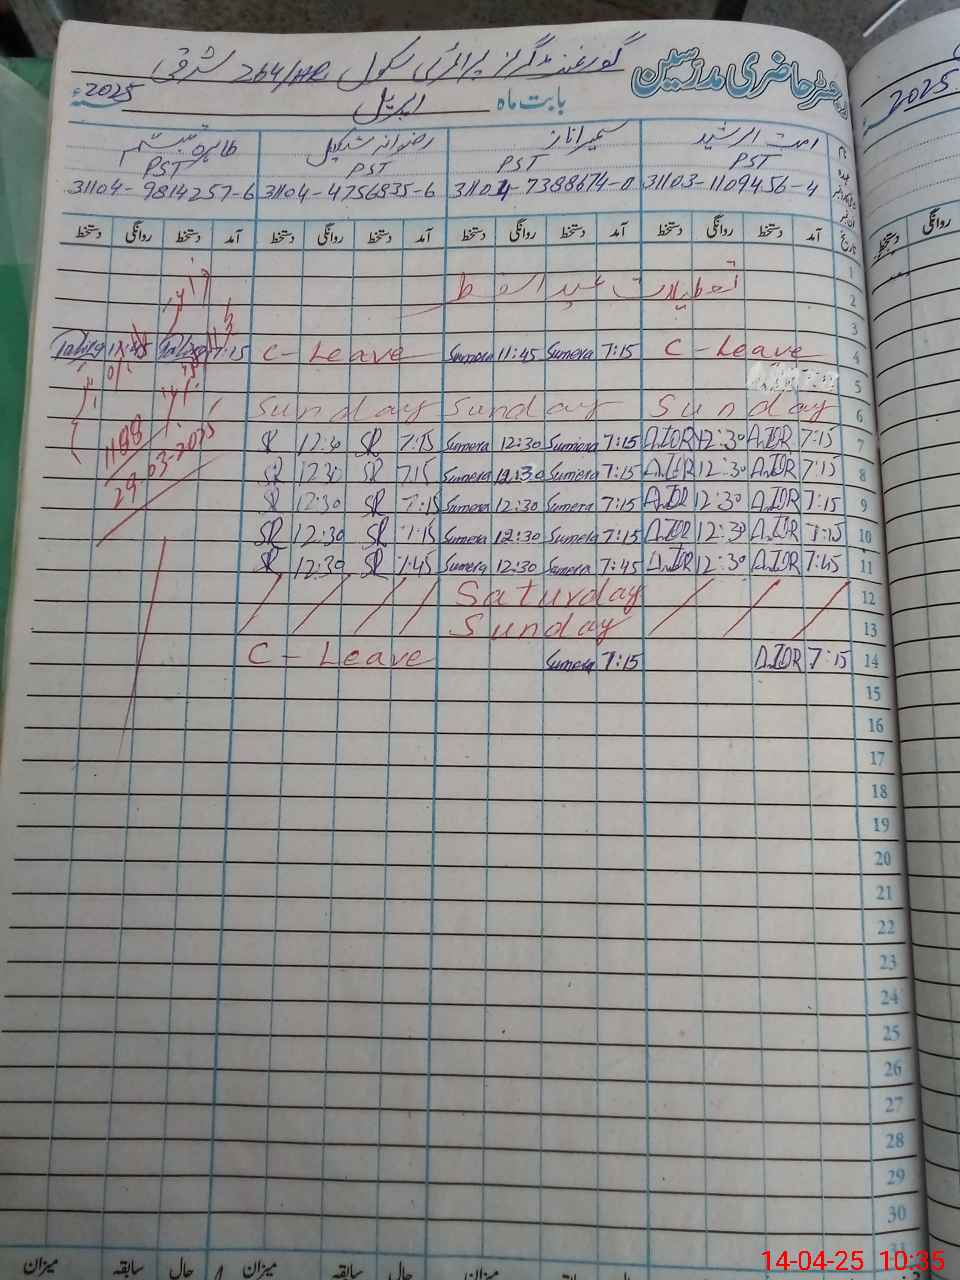 رجسٹر حاضری مدرسین گورنمنٹ گرلز پرائمری سکول 264/HR شرقی
بابت ماہ اپریل 2025
امت الرشید سمیرا ناز رضوانہ شکیل طاہرہ تبسم
PST PST PST PST
31103-1109456-4 31104-7388674-0 31104-4756835-6 31104-9814257-6
تاریخ آمد دستخط روانگی دستخط آمد دستخط روانگی دستخط آمد دستخط روانگی دستخط آمد دستخط روانگی دستخط
1
2 تعطیلات عید الفطر
3
Tahira 11:45 Tahira 7:15 C - Leave Sumera 11:45 Sumera 7:15 C - Leave 4
5
Sunday Sunday Sunday 6
SR 12:30 SR 7:15 Sumera 12:30 Sumera 7:15 A.IOR 12:30 A.IOR 7:15 7
1188
SR 12:30 SR 7:15 Sumera 12:30 Sumera 7:15 A.IOR 12:30 A.IOR 7:15 8
29-03-2025
SR 12:30 SR 7:15 Sumera 12:30 Sumera 7:15 A.IOR 12:30 A.IOR 7:15 9
SR 12:30 SR 7:15 Sumera 12:30 Sumera 7:15 A.IOR 12:30 A.IOR 7:15 10
SR 12:30 SR 7:45 Sumera 12:30 Sumera 7:45 A.IOR 12:30 A.IOR 7:45 11
Saturday 12
Sunday 13
C - Leave Sumera 7:15 A.IOR 7:15 14
15
16
17
18
19
20
21
22
23
24
25
26
27
28
29
30
31
میزان حال سابقہ میزان حال سابقہ میزان
2025
روانگی دستخط
14-04-25 10:35